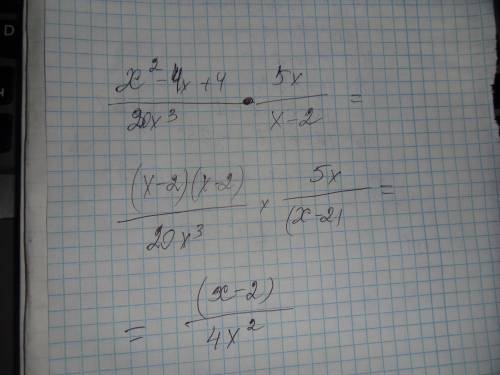 x² - 4x + 4 / 20x³ · 5x / x - 2 =
(x - 2)(x - 2) / 20x³ × 5x / (x - 2) =
= (x - 2) / 4x²